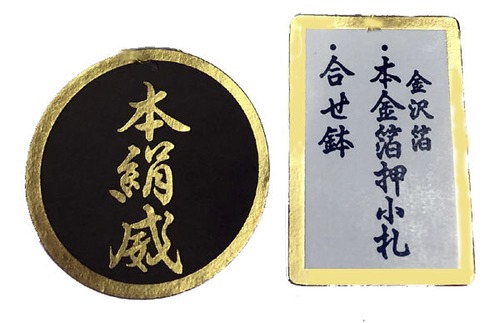 本絹威
金沢箔
・本金箔押小札
・合せ鉢